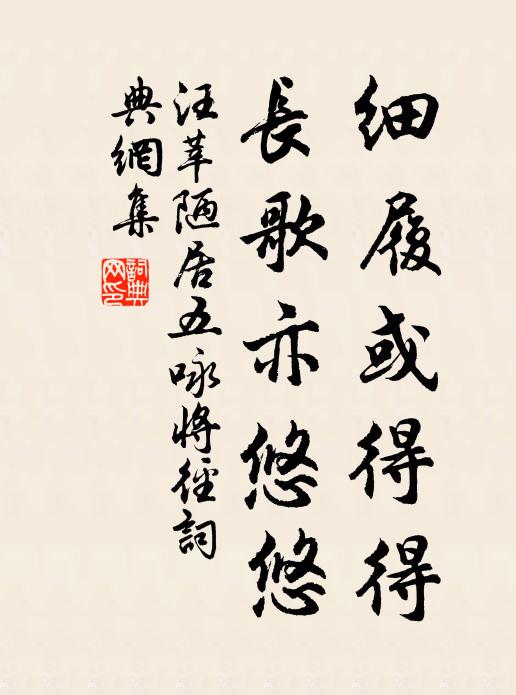 細履或得得
長歌亦悠悠
汪莘陋居五咏將徑詞
典網集
詞典
網印